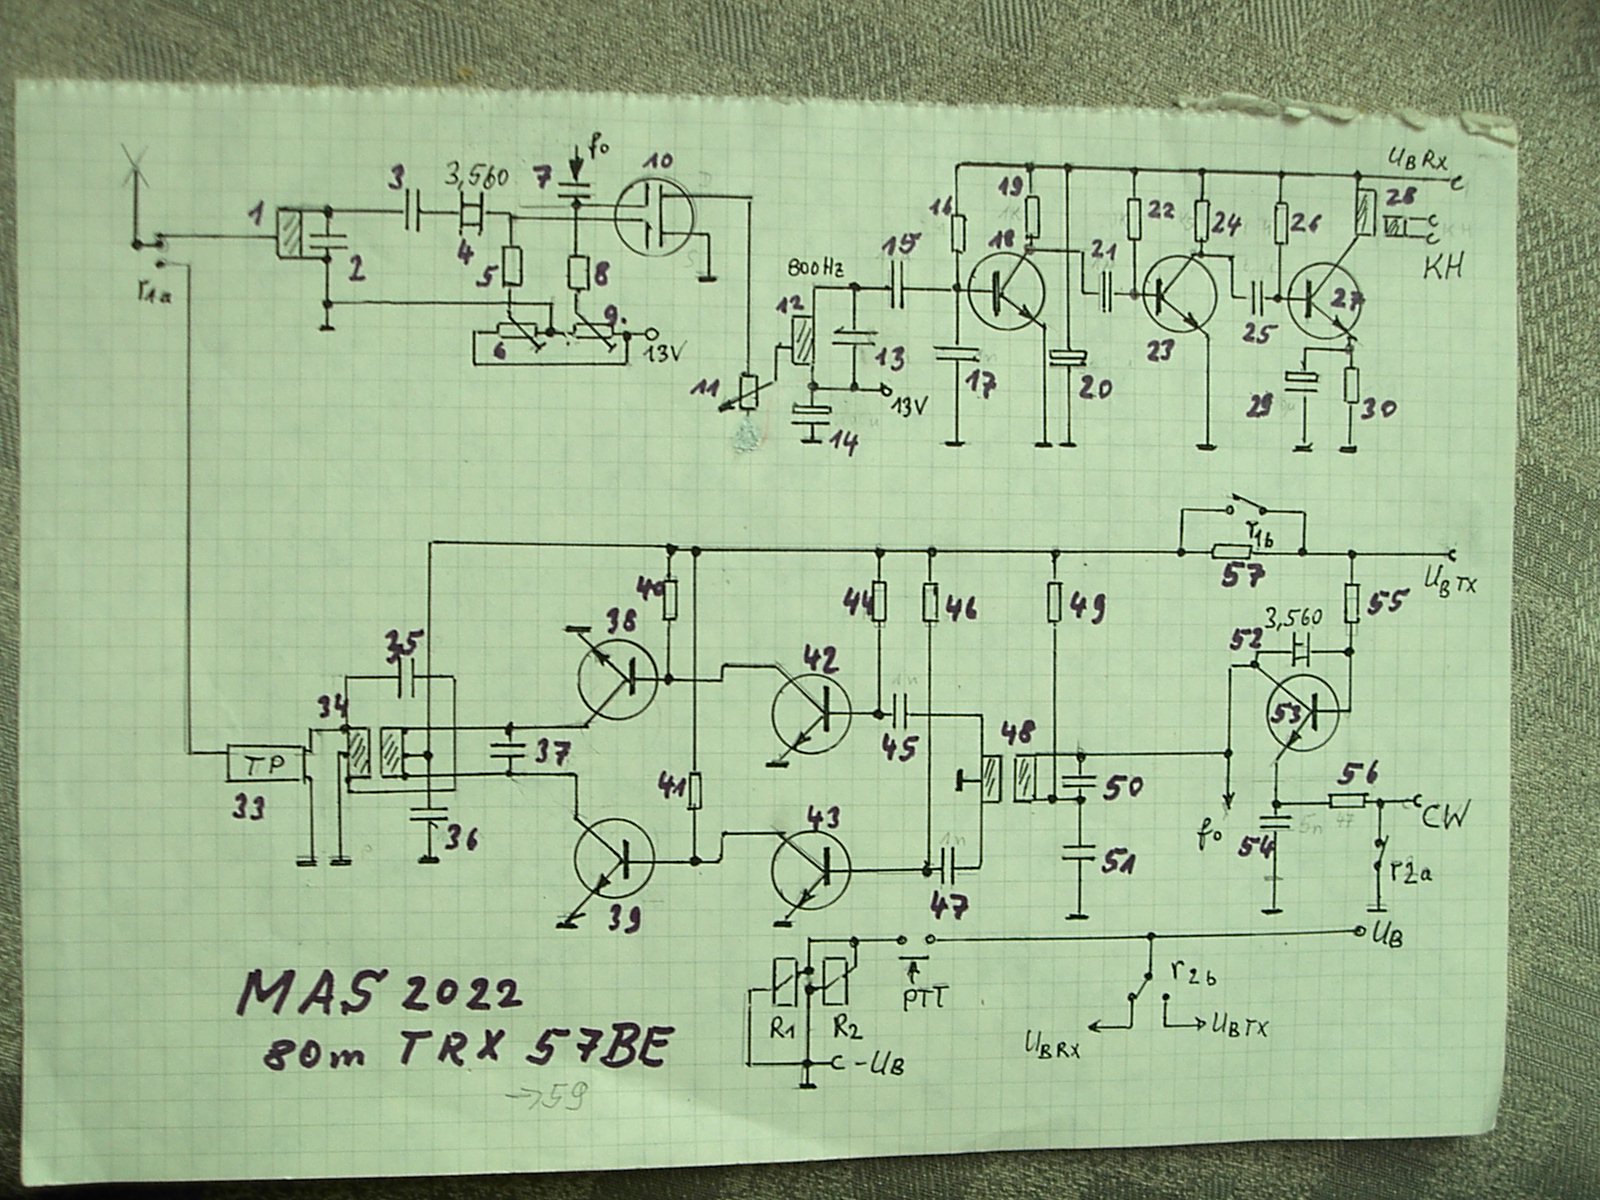 f0
3,560
3
7
10
1
2
4
5
8
6
9.
13V
r1a
UB RX
16
19
22
24
26
28
KH
15
18
21
23
25
27
800Hz
12
13
13V
11
14
17
20
29
30
r1b
57
UB TX
40
38
44
46
49
55
3,560
52
35
42
53
34
1n
45
48
37
TP
33
36
41
43
50
56
CW
f0
5n
54
51
1n
47
r2a
39
UB
PTT
r2b
R1
R2
UB RX
UB TX
-UB
MAS 2022
80m TRX 57BE
→59